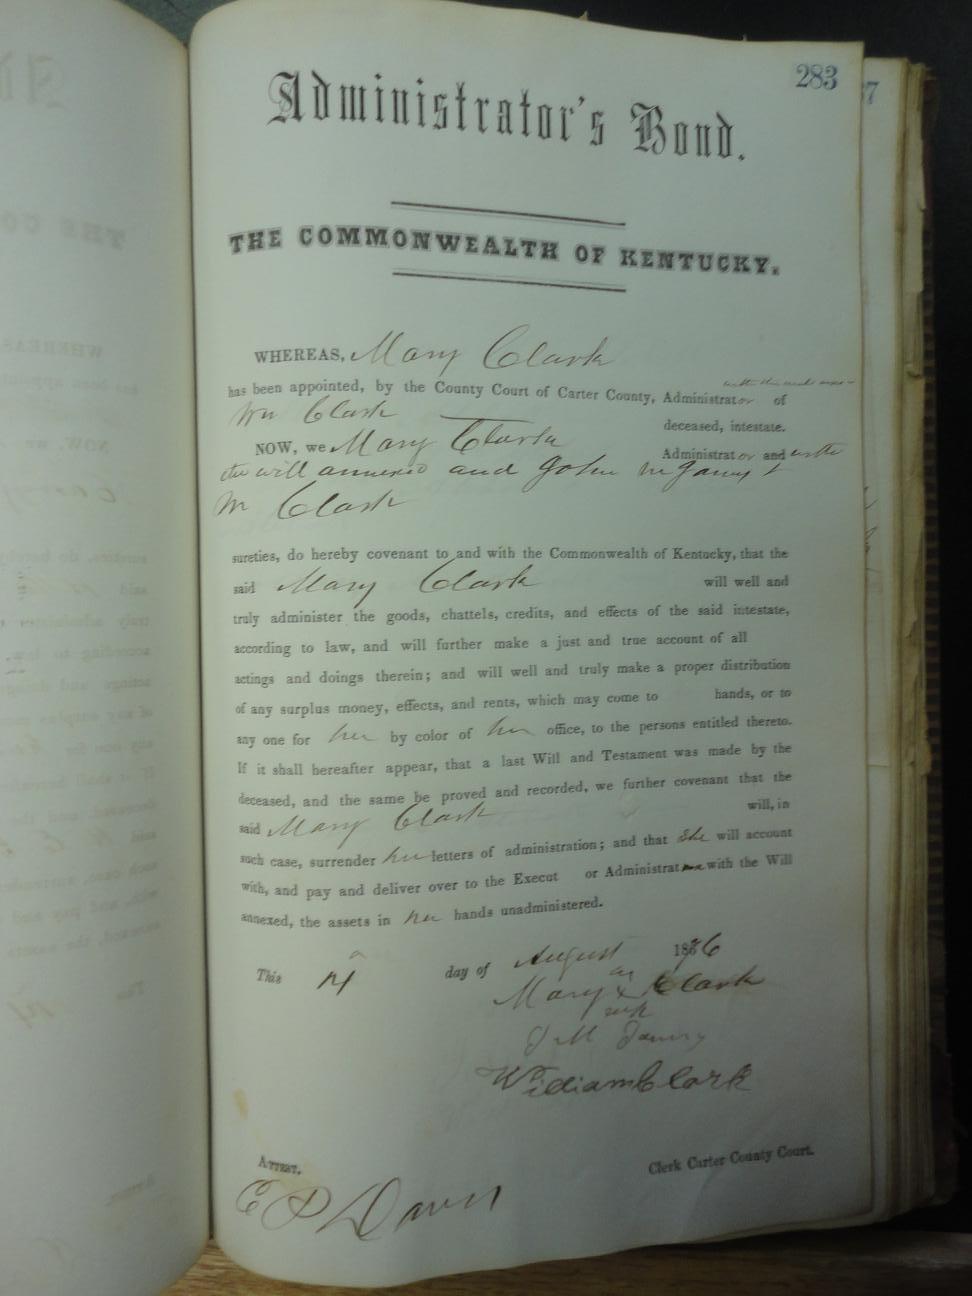 283
Administrator's Bond.
THE COMMONWEALTH OF KENTUCKY.
WHEREAS, Mary Clark
has been appointed, by the County Court of Carter County, Administrator of
with the will
Wm Clark deceased, intestate.
NOW, we Mary Clark Administrator and with
the will annexed and John M
Wm Clark
sureties, do hereby covenant to and with the Commonwealth of Kentucky, that the
said Mary Clark will well and
truly administer the goods, chattels, credits, and effects of the said intestate,
according to law, and will further make a just and true account of all
actings and doings therein; and will well and truly make a proper distribution
of any surplus money, effects, and rents, which may come to hands, or to
any one for her by color of her office, to the persons entitled thereto.
If it shall hereafter appear, that a last Will and Testament was made by the
deceased, and the same be proved and recorded, we further covenant that the
said Mary Clark will, in
such case, surrender her letters of administration; and that she will account
with, and pay and deliver over to the Execut or Administrat with the Will
annexed, the assets in her hands unadministered.
This 14 day of August 1876
Mary X Clark
mark
J M
William Clark
ATTEST.
Clerk Carter County Court.
C P Davis